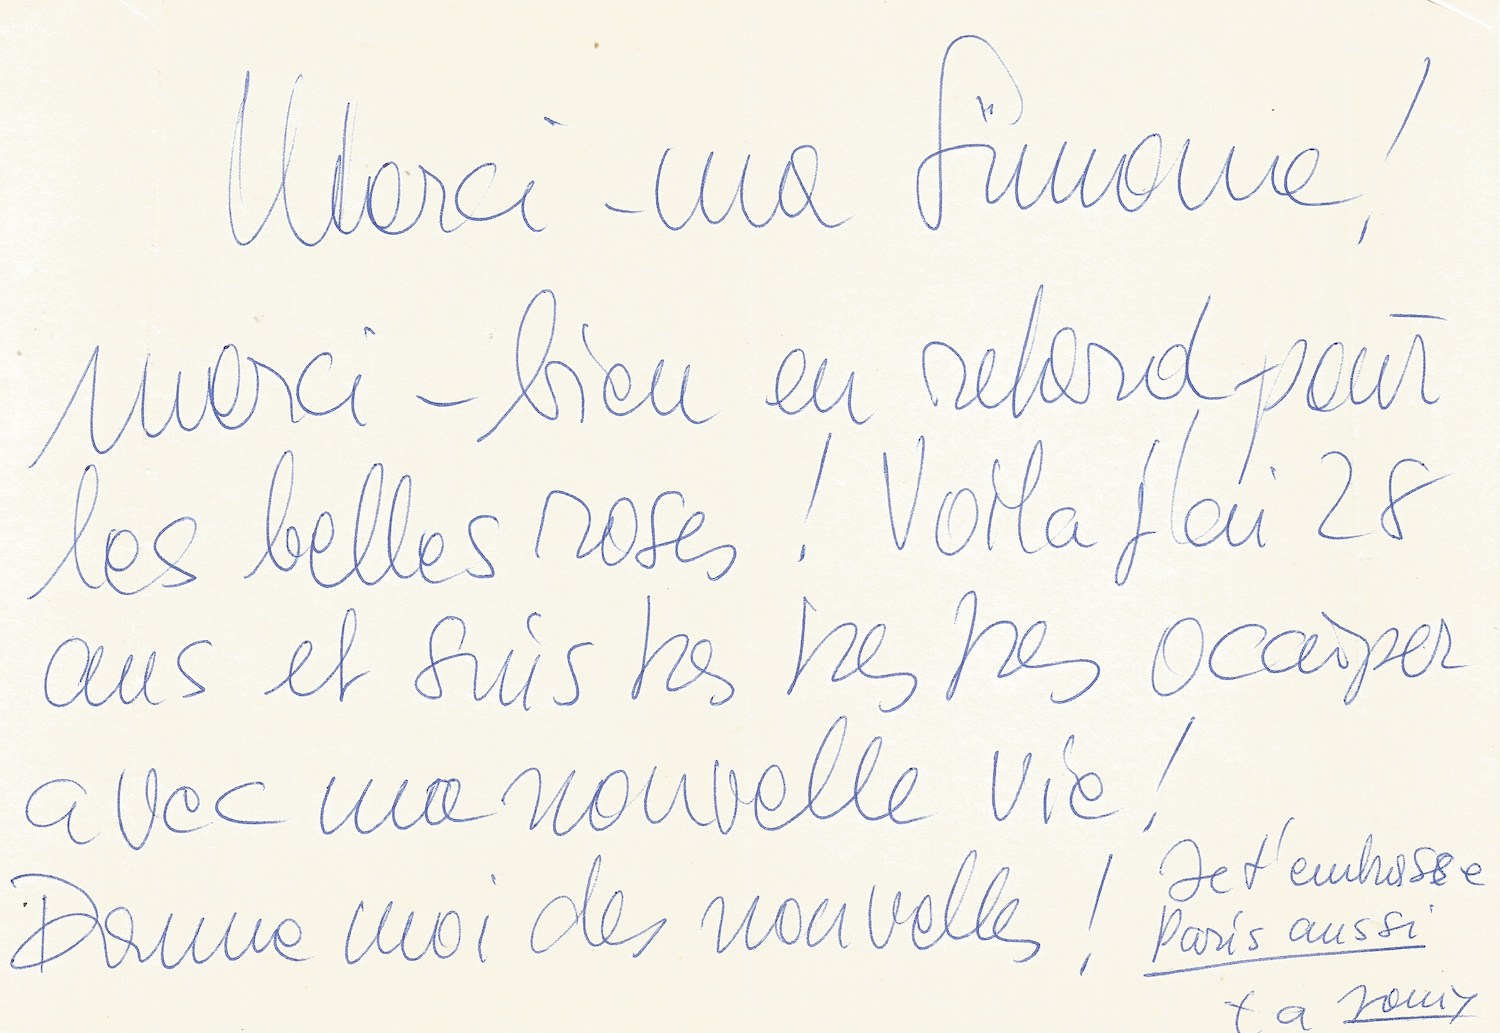 Merci - ma Simone!
merci - bien en retard pour
les belles roses! Voila j'ai 28
ans et suis tres tres tres occuper
avec ma nouvelle vie!
Donne moi des nouvelles!
Je t'embrasse
Paris aussi
ta Romy